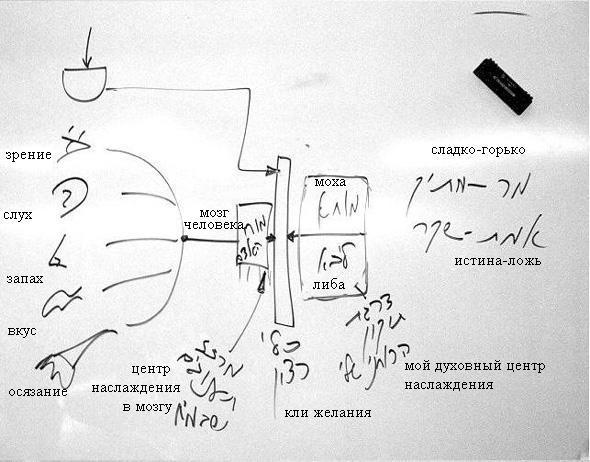 сладко-горько
מר-מתיק
зрение
моха
מוחא
слух
мозг
человека
מוח
האדם
אמת-שקר
истина-ложь
запах
ליבא
либа
вкус
осязание
центр
наслаждения
в мозгу
כלי
רצון
кли желания
мой духовный центр
наслаждения